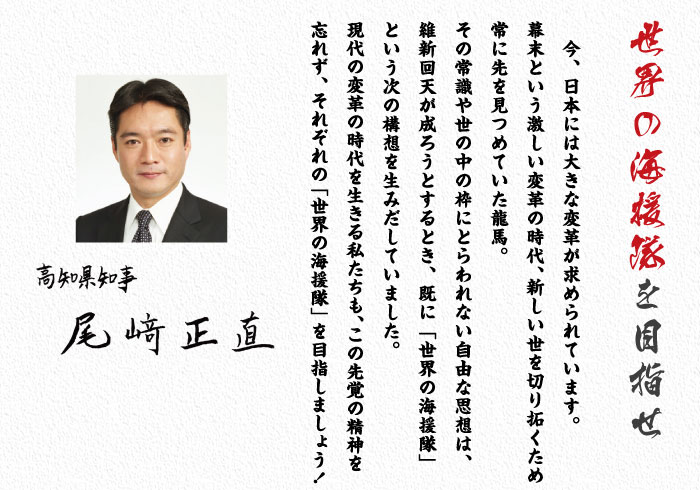 世界の海援隊を目指せ
今、日本には大きな変革が求められています。
幕末という激しい変革の時代、新しい世を切り拓くため
常に先を見つめていた龍馬。
その常識や世の中の枠にとらわれない自由な思想は、
維新回天が成ろうとするとき、既に「世界の海援隊」
という次の構想を生みだしていました。
現代の変革の時代を生きる私たちも、この先覚の精神を
忘れず、それぞれの「世界の海援隊」を目指しましょう!
高知県知事
尾﨑正直